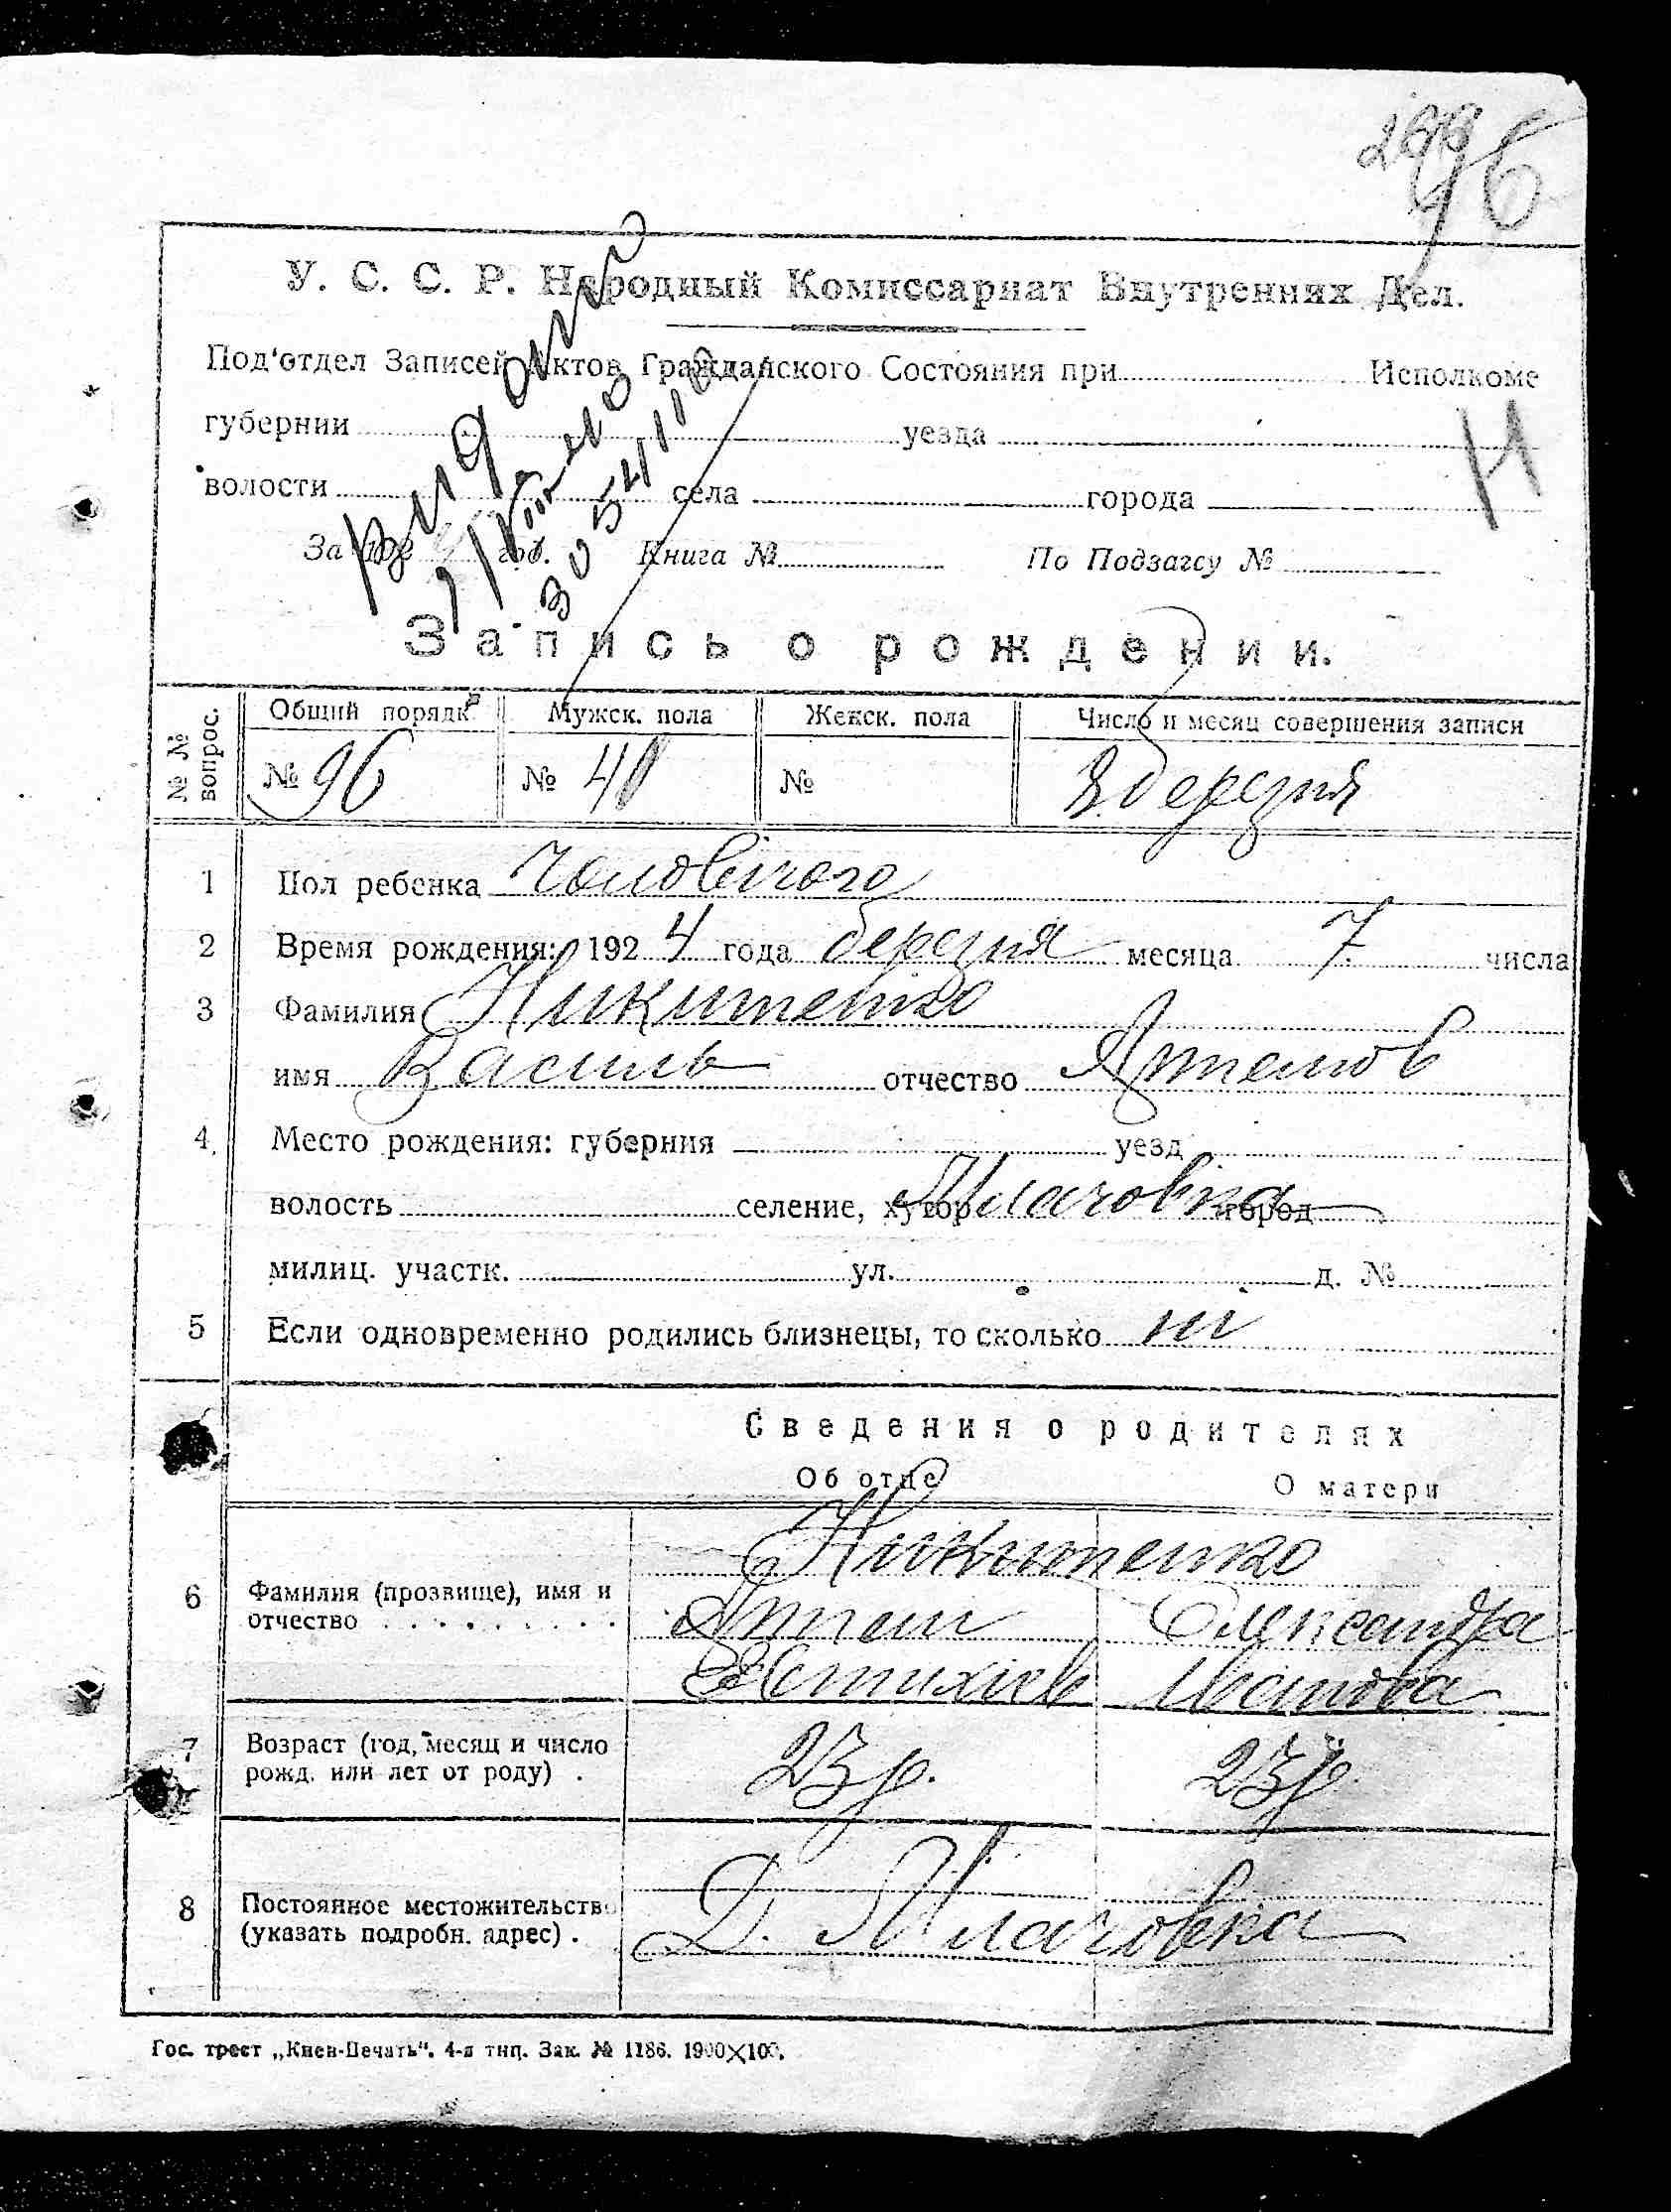 96
У. С. С. Р. Народный Комиссариат Внутренних Дел.
Под'отдел Записей Актов Гражданского Состояния при Исполкоме
губернии уезда
Н
волости села города
За 192 год. Книга № По Подзагсу №
Запись о рождении.
№ № вопрос.
Общий порядк. Мужск. пола Женск. пола Число и месяц совершения записи
№ 96 № 40 № 8 березня
1 Пол ребенка Чоловічого
2 Время рождения: 1924 года березня месяца 7 числа
3 Фамилия Никитенко
имя Василь отчество Артемов
4 Место рождения: губерния уезд
волость селение, хутор город
милиц. участк. ул. д. №
5 Если одновременно родились близнецы, то сколько ні
Сведения о родителях
Об отце О матери
Никитенко
6 Фамилия (прозвище), имя и
отчество
Артем Олександра
Іванова
7 Возраст (год, месяц и число
рожд. или лет от роду) .
23 р. 23 р.
8 Постоянное местожительство
(указать подробн. адрес) .
Д.
Гос. трест „Киев-Печать". 4-я тип. Зак. № 1186. 1900×100.